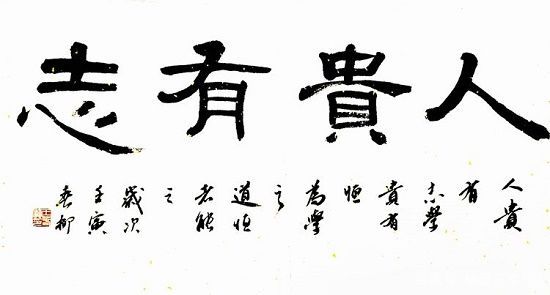 人貴有志
人貴
有
志學
貴有
恒
為學
之
道恒
者能
之
歲次
壬寅
春柳